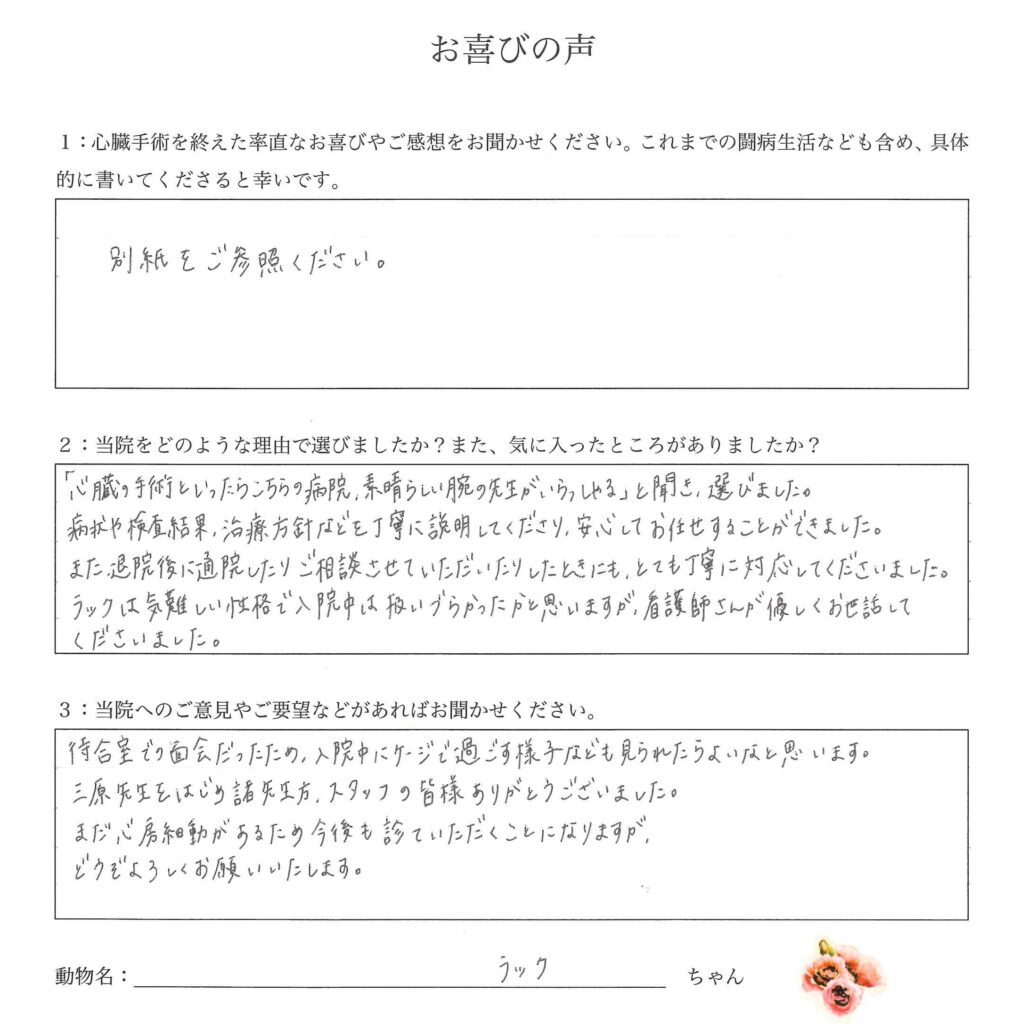 お喜びの声
１：心臓手術を終えた率直なお喜びやご感想をお聞かせください。これまでの闘病生活なども含め、具体
的に書いてくださると幸いです。
別紙をご参照ください。
２：当院をどのような理由で選びましたか？また、気に入ったところがありましたか？
「心臓の手術といったらこちらの病院，素晴らしい腕の先生がいらっしゃる」と聞き，選びました。
病状や検査結果，治療方針などを丁寧に説明してくださり，安心してお任せすることができました。
また，退院後に通院したりご相談させていただいたりしたときにも，とても丁寧に対応してくださいました。
ラックは気難しい性格で入院中は扱いづらかったかと思いますが，看護師さんが優しくお世話して
くださいました。
３：当院へのご意見やご要望などがあればお聞かせください。
待合室での面会だったため，入院中にケージで過ごす様子なども見られたらよいなと思います。
三原先生をはじめ諸先生方，スタッフの皆様ありがとうございました。
まだ心房細動があるため今後も診ていただくことになりますが，
どうぞよろしくお願いいたします。
動物名：ラック ちゃん